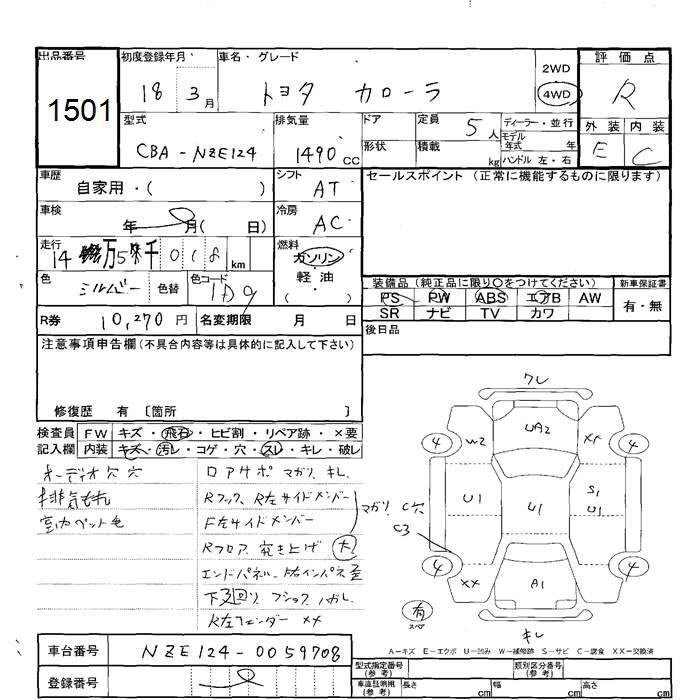 出品番号 初度登録年月 車名・グレード 2WD 評価点
1501 18 3月 トヨタ カローラ 4WD R
型式 排気量 ドア 定員 5人 ディーラー・並行 外装 内装
CBA-NZE124 1490cc 形状 積載 kg モデル年式 年 ハンドル 左・右 E C
車歴 自家用・( ) シフト AT セールスポイント(正常に機能するものに限ります)
車検 年 月( 日) 冷房 AC
走行 14 万5千018km 燃料 ガソリン・軽油・( )
色 シルバー 色替 色コード 1D9
装備品(純正品に限り○をつけてください) 新車保証書
PS PW ABS エアB AW 有・無
SR ナビ TV カワ
R券 10,270円 名変期限 月 日 後日品
注意事項申告欄(不具合内容等は具体的に記入して下さい)
修復歴 有〔箇所 〕
検査員 FW キズ・飛石・ヒビ割・リペア跡・×要
記入欄 内装 キズ・汚レ・コゲ・穴・スレ・キレ・破レ
オーディオ穴 穴 ロアサポ マガリ、キレ
排気もれ Rフック、R左サイドメンバー
室内ペット毛 F左サイドメンバー マガリ C穴
Rフロア 突き上げ 大
エンドパネル
下廻り
R左フェンダー XX
ワレ
4 W2 UA2 XX 4
U1 U1 S1 U1
C3
4 XX A1 4
有
スペア
キレ
A－キズ E－エクボ U－凹み W－補修跡 S－サビ C－腐食 XX－交換済
車台番号 NZE124-0059708 型式指定番号(参考) 類別区分番号(参考)
登録番号 車庫証明用(参考) 長さ cm 幅 cm 高さ cm